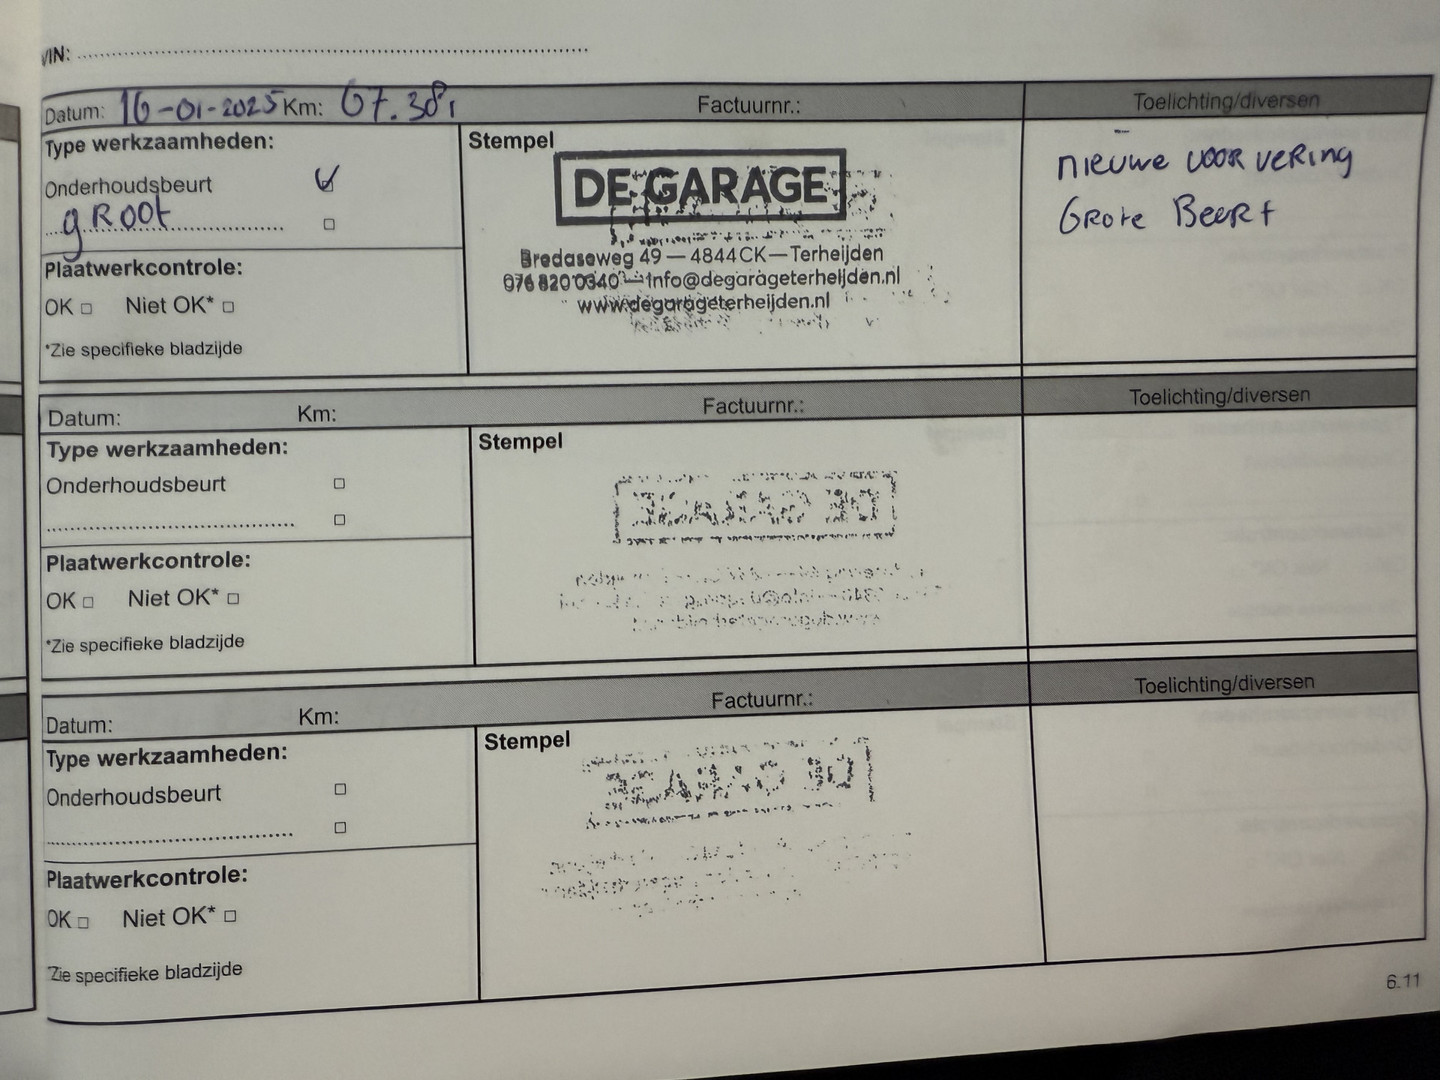 VIN:
Datum: 16-01-2025 Km: 67.381 Factuurnr.: Toelichting/diversen
Type werkzaamheden:
Onderhoudsbeurt
groot
Plaatwerkcontrole:
OK Niet OK*
*Zie specifieke bladzijde
Stempel
DE GARAGE
Bredaseweg 49 — 4844 CK — Terheijden
076 820 0340 — info@degarageterheijden.nl
www.degarageterheijden.nl
nieuwe voor vering
Grote Beert
Datum: Km: Factuurnr.: Toelichting/diversen
Type werkzaamheden:
Onderhoudsbeurt
Plaatwerkcontrole:
OK Niet OK*
*Zie specifieke bladzijde
Stempel
Datum: Km: Factuurnr.: Toelichting/diversen
Type werkzaamheden:
Onderhoudsbeurt
Plaatwerkcontrole:
OK Niet OK*
*Zie specifieke bladzijde
Stempel
6.11